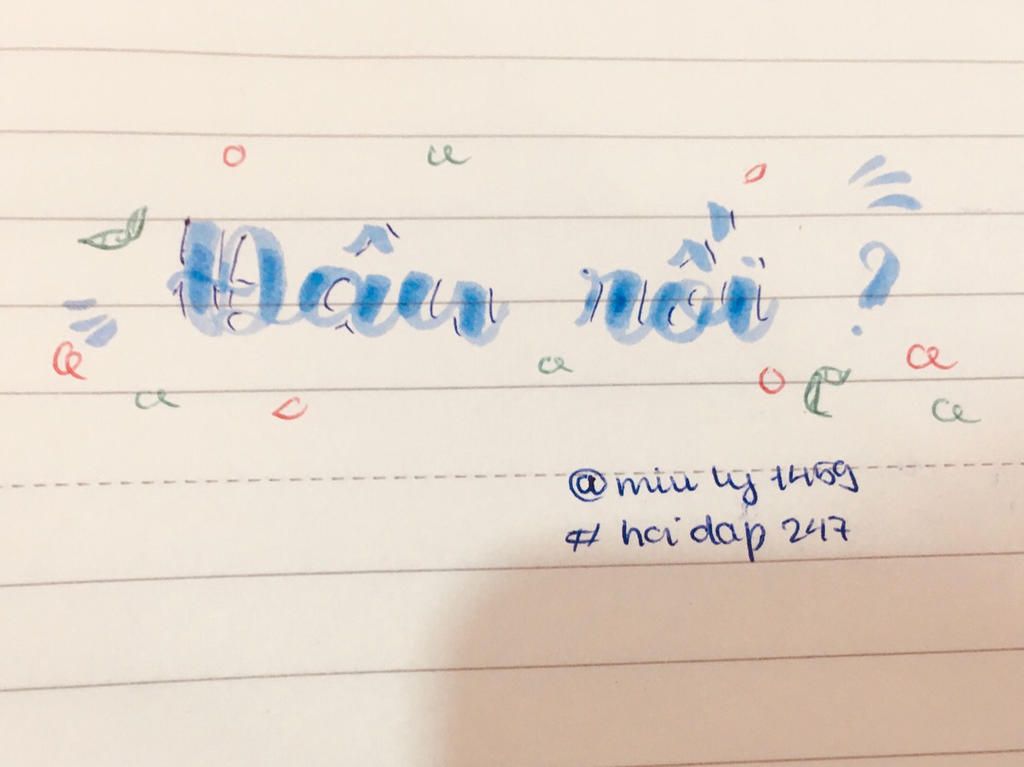 Đâu ?
@miu ly 1459
# hoidap 247